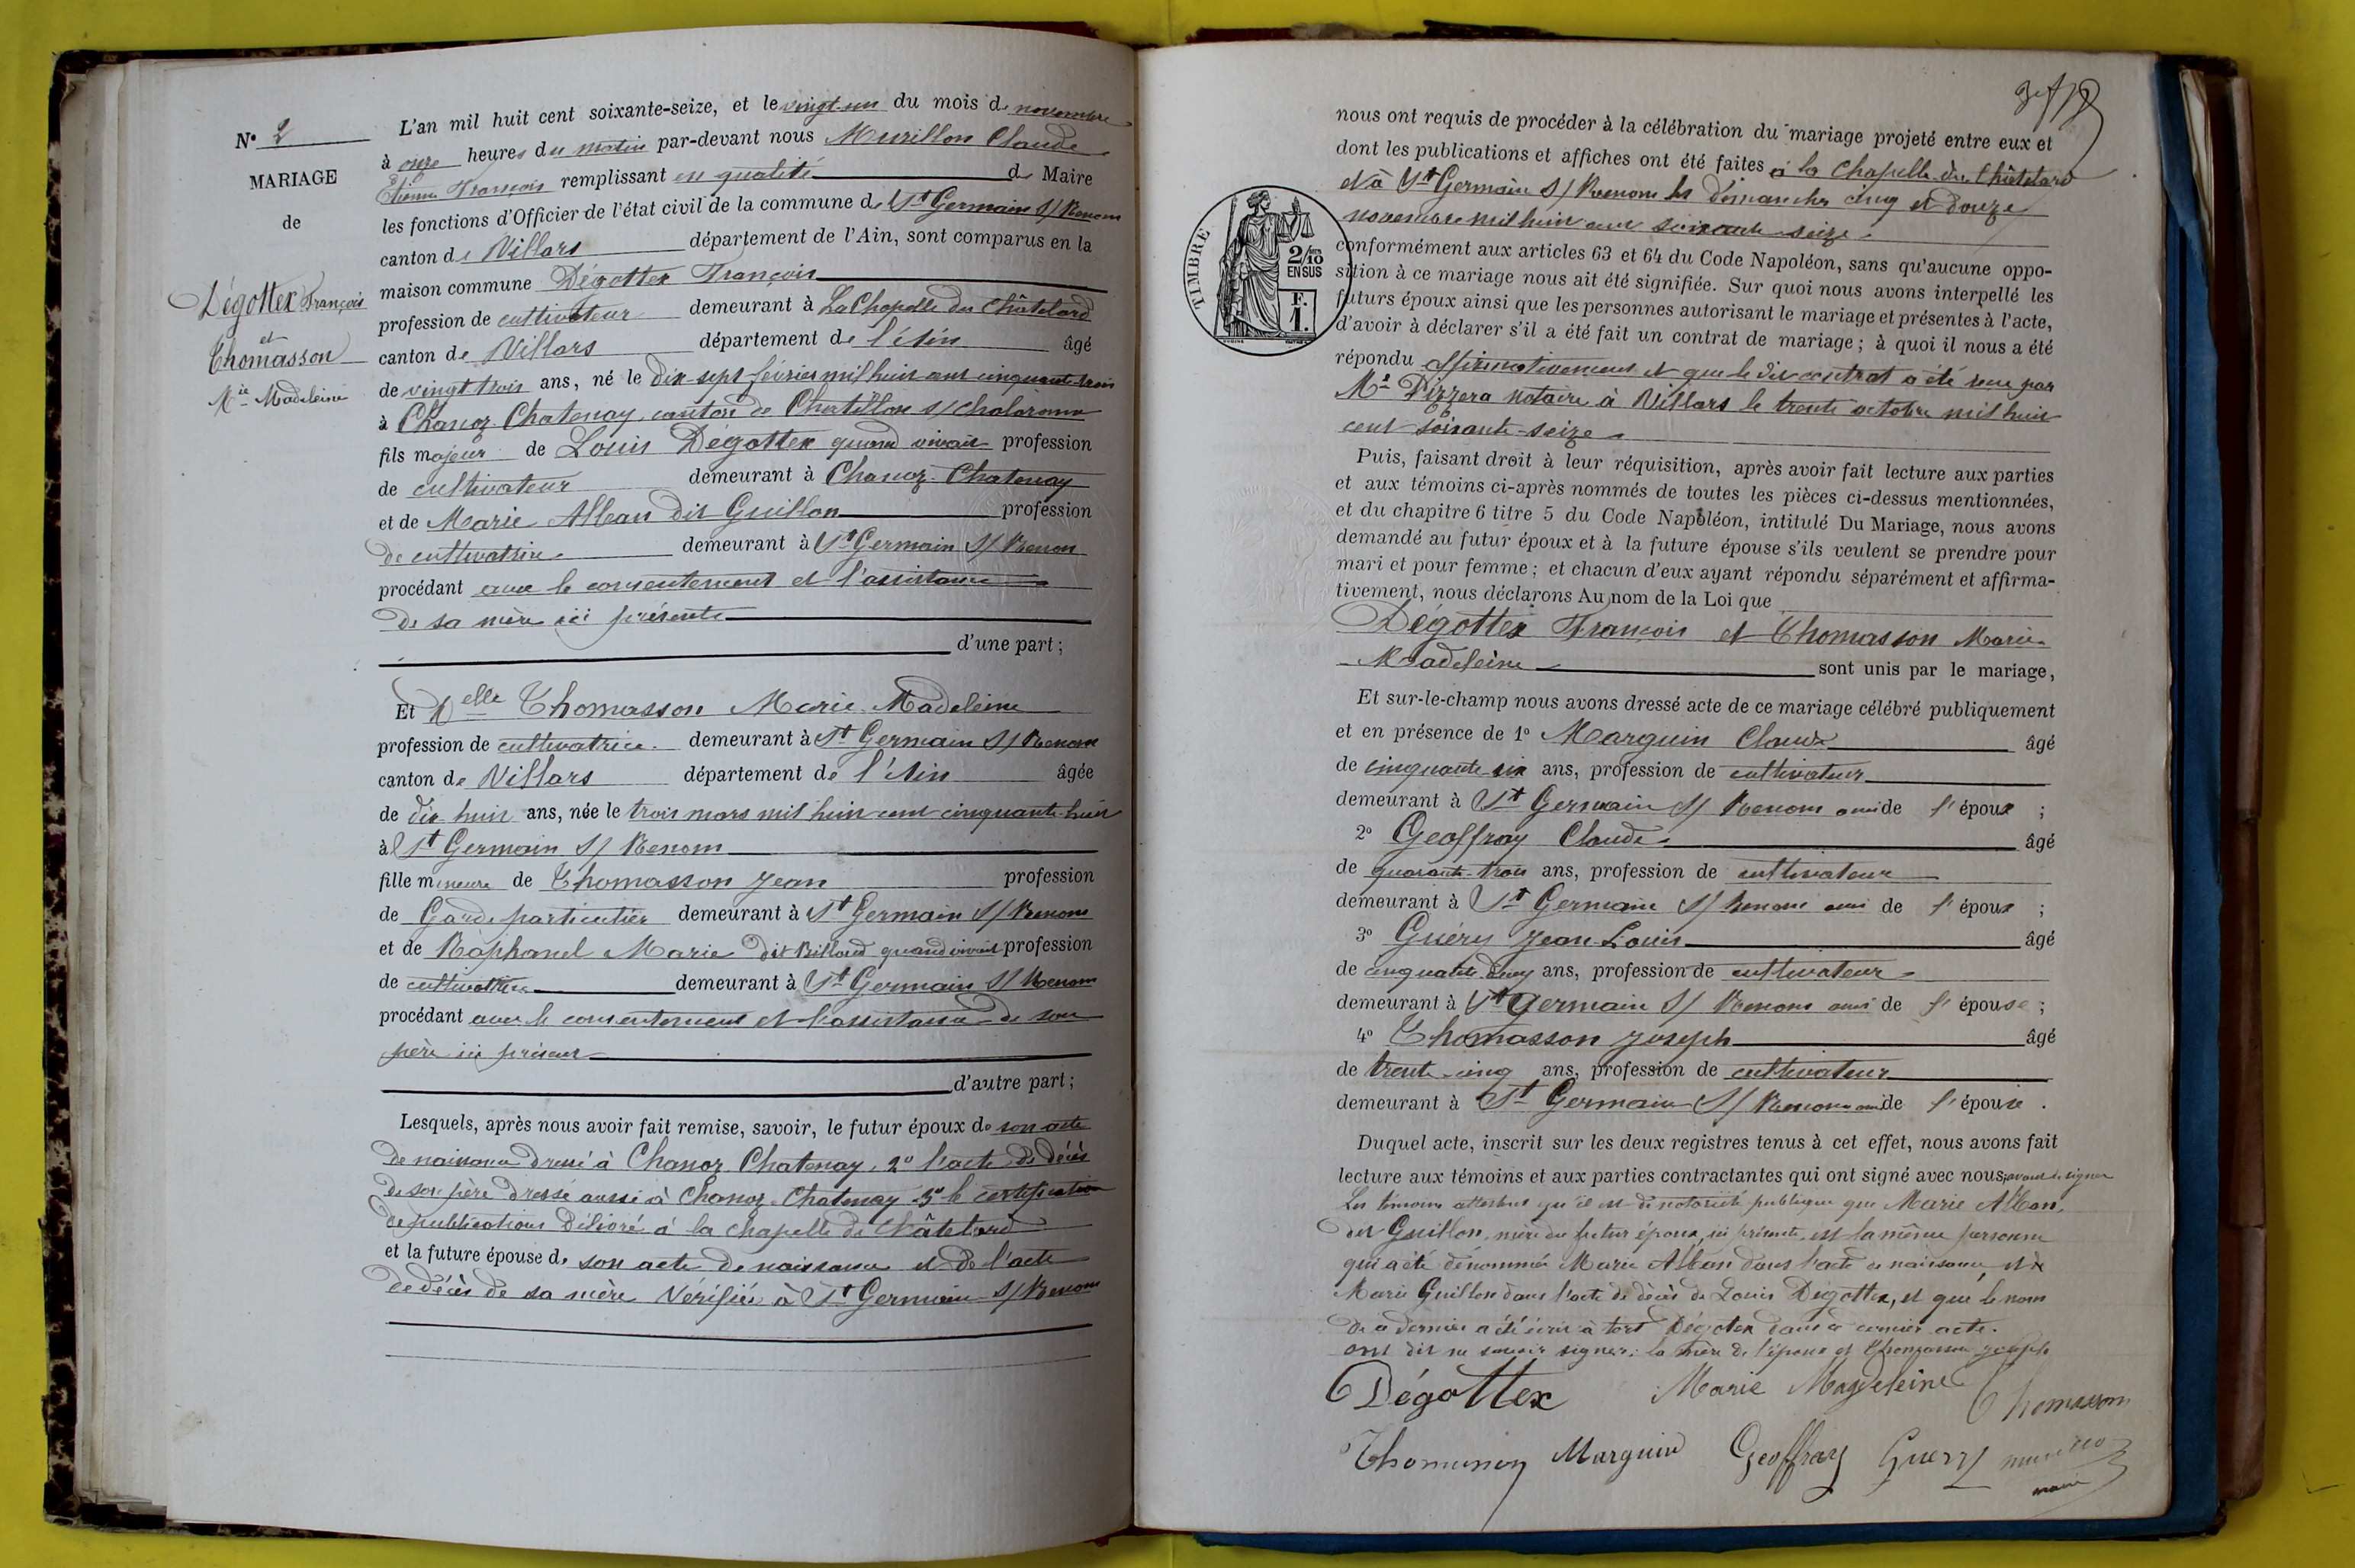 N° 2
MARIAGE
de
Dégottex François
et
Thomasson
Mie Madeleine
L'an mil huit cent soixante-seize, et le vingt-un du mois de novembre
à onze heures du matin par-devant nous Murillon Claude
Etienne François remplissant en qualité de Maire
les fonctions d'Officier de l'état civil de la commune de St Germain S/ Renom
canton de Villars département de l'Ain, sont comparus en la
maison commune Dégottex François
profession de cultivateur demeurant à La Chapelle du Châtelard
canton de Villars département de l'Ain âgé
de vingt trois ans, né le dix-sept février mil huit cent cinquante-trois
à Chanoz-Chatenay, canton de Chatillon s/ Chalaronne
fils majeur de Louis Dégottex quand vivait profession
de cultivateur demeurant à Chanoz-Chatenay
et de Marie Alban dit Guillon profession
de cultivatrice demeurant à St Germain S/ Renom
procédant avec le consentement et l'assistance
de sa mère ici présente
d'une part;
Et Delle Thomasson Marie Madeleine
profession de cultivatrice demeurant à St Germain S/ Renom
canton de Villars département de l'Ain âgée
de dix huit ans, née le trois mars mil huit cent cinquante-huit
à St Germain S/ Renom
fille mineure de Thomasson Jean profession
de Garde particulier demeurant à St Germain S/ Renom
et de Raphanel Marie dit Billoud quand vivait profession
de cultivatrice demeurant à St Germain S/ Renom
procédant avec le consentement et l'assistance de son
père ici présent
d'autre part;
Lesquels, après nous avoir fait remise, savoir, le futur époux de son acte
de naissance dressé à Chanoz Chatenay, 2° l'acte de décès
de son père dressé aussi à Chanoz-Chatenay 3° le certificat
de publications délivré à la chapelle du Châtelard
et la future épouse de son acte de naissance et de l'acte
de décès de sa mère vérifiés à St Germain S/ Renom
nous ont requis de procéder à la célébration du mariage projeté entre eux et
dont les publications et affiches ont été faites à la Chapelle du Châtelard
et à St Germain S/ Renom les dimanches cinq et douze
novembre mil huit cent soixante-seize
TIMBRE
2/10 EN SUS
F. 1.
conformément aux articles 63 et 64 du Code Napoléon, sans qu'aucune oppo-
sition à ce mariage nous ait été signifiée. Sur quoi nous avons interpellé les
futurs époux ainsi que les personnes autorisant le mariage et présentes à l'acte,
d'avoir à déclarer s'il a été fait un contrat de mariage; à quoi il nous a été
répondu affirmativement et que le dit contrat a été reçu par
Me Pizzera notaire à Villars le trente octobre mil huit
cent soixante-seize
Puis, faisant droit à leur réquisition, après avoir fait lecture aux parties
et aux témoins ci-après nommés de toutes les pièces ci-dessus mentionnées,
et du chapitre 6 titre 5 du Code Napoléon, intitulé Du Mariage, nous avons
demandé au futur époux et à la future épouse s'ils veulent se prendre pour
mari et pour femme; et chacun d'eux ayant répondu séparément et affirma-
tivement, nous déclarons Au nom de la Loi que
Dégottex François et Thomasson Marie
Madeleine sont unis par le mariage,
Et sur-le-champ nous avons dressé acte de ce mariage célébré publiquement
et en présence de 1° Marguin Claude âgé
de cinquante-six ans, profession de cultivateur
demeurant à St Germain S/ Renom ami de l'époux ;
2° Geoffray Claude âgé
de quarante-trois ans, profession de cultivateur
demeurant à St Germain S/ Renom ami de l'époux ;
3° Guéry Jean-Louis âgé
de cinquante-deux ans, profession de cultivateur
demeurant à St Germain S/ Renom ami de l'épouse ;
4° Thomasson Joseph âgé
de trente-cinq ans, profession de cultivateur
demeurant à St Germain S/ Renom ami de l'épouse .
Duquel acte, inscrit sur les deux registres tenus à cet effet, nous avons fait
lecture aux témoins et aux parties contractantes qui ont signé avec nous, avant de signer
Les témoins attestent qu'il est de notoriété publique que Marie Alban
dit Guillon, mère du futur époux, ici présente, est la même personne
qui a été dénommée Marie Alban dans l'acte de naissance, et de
Marie Guillon dans l'acte de décès de Louis Dégottex, et que le nom
de ce dernier a été écrit à tort Dégotex dans ce dernier acte.
ont dit ne savoir signer: la mère de l'époux et Thomasson Joseph
Dégottex Marie Magdeleine Thomasson
Thomasson Marguin Geoffray Guery
maire